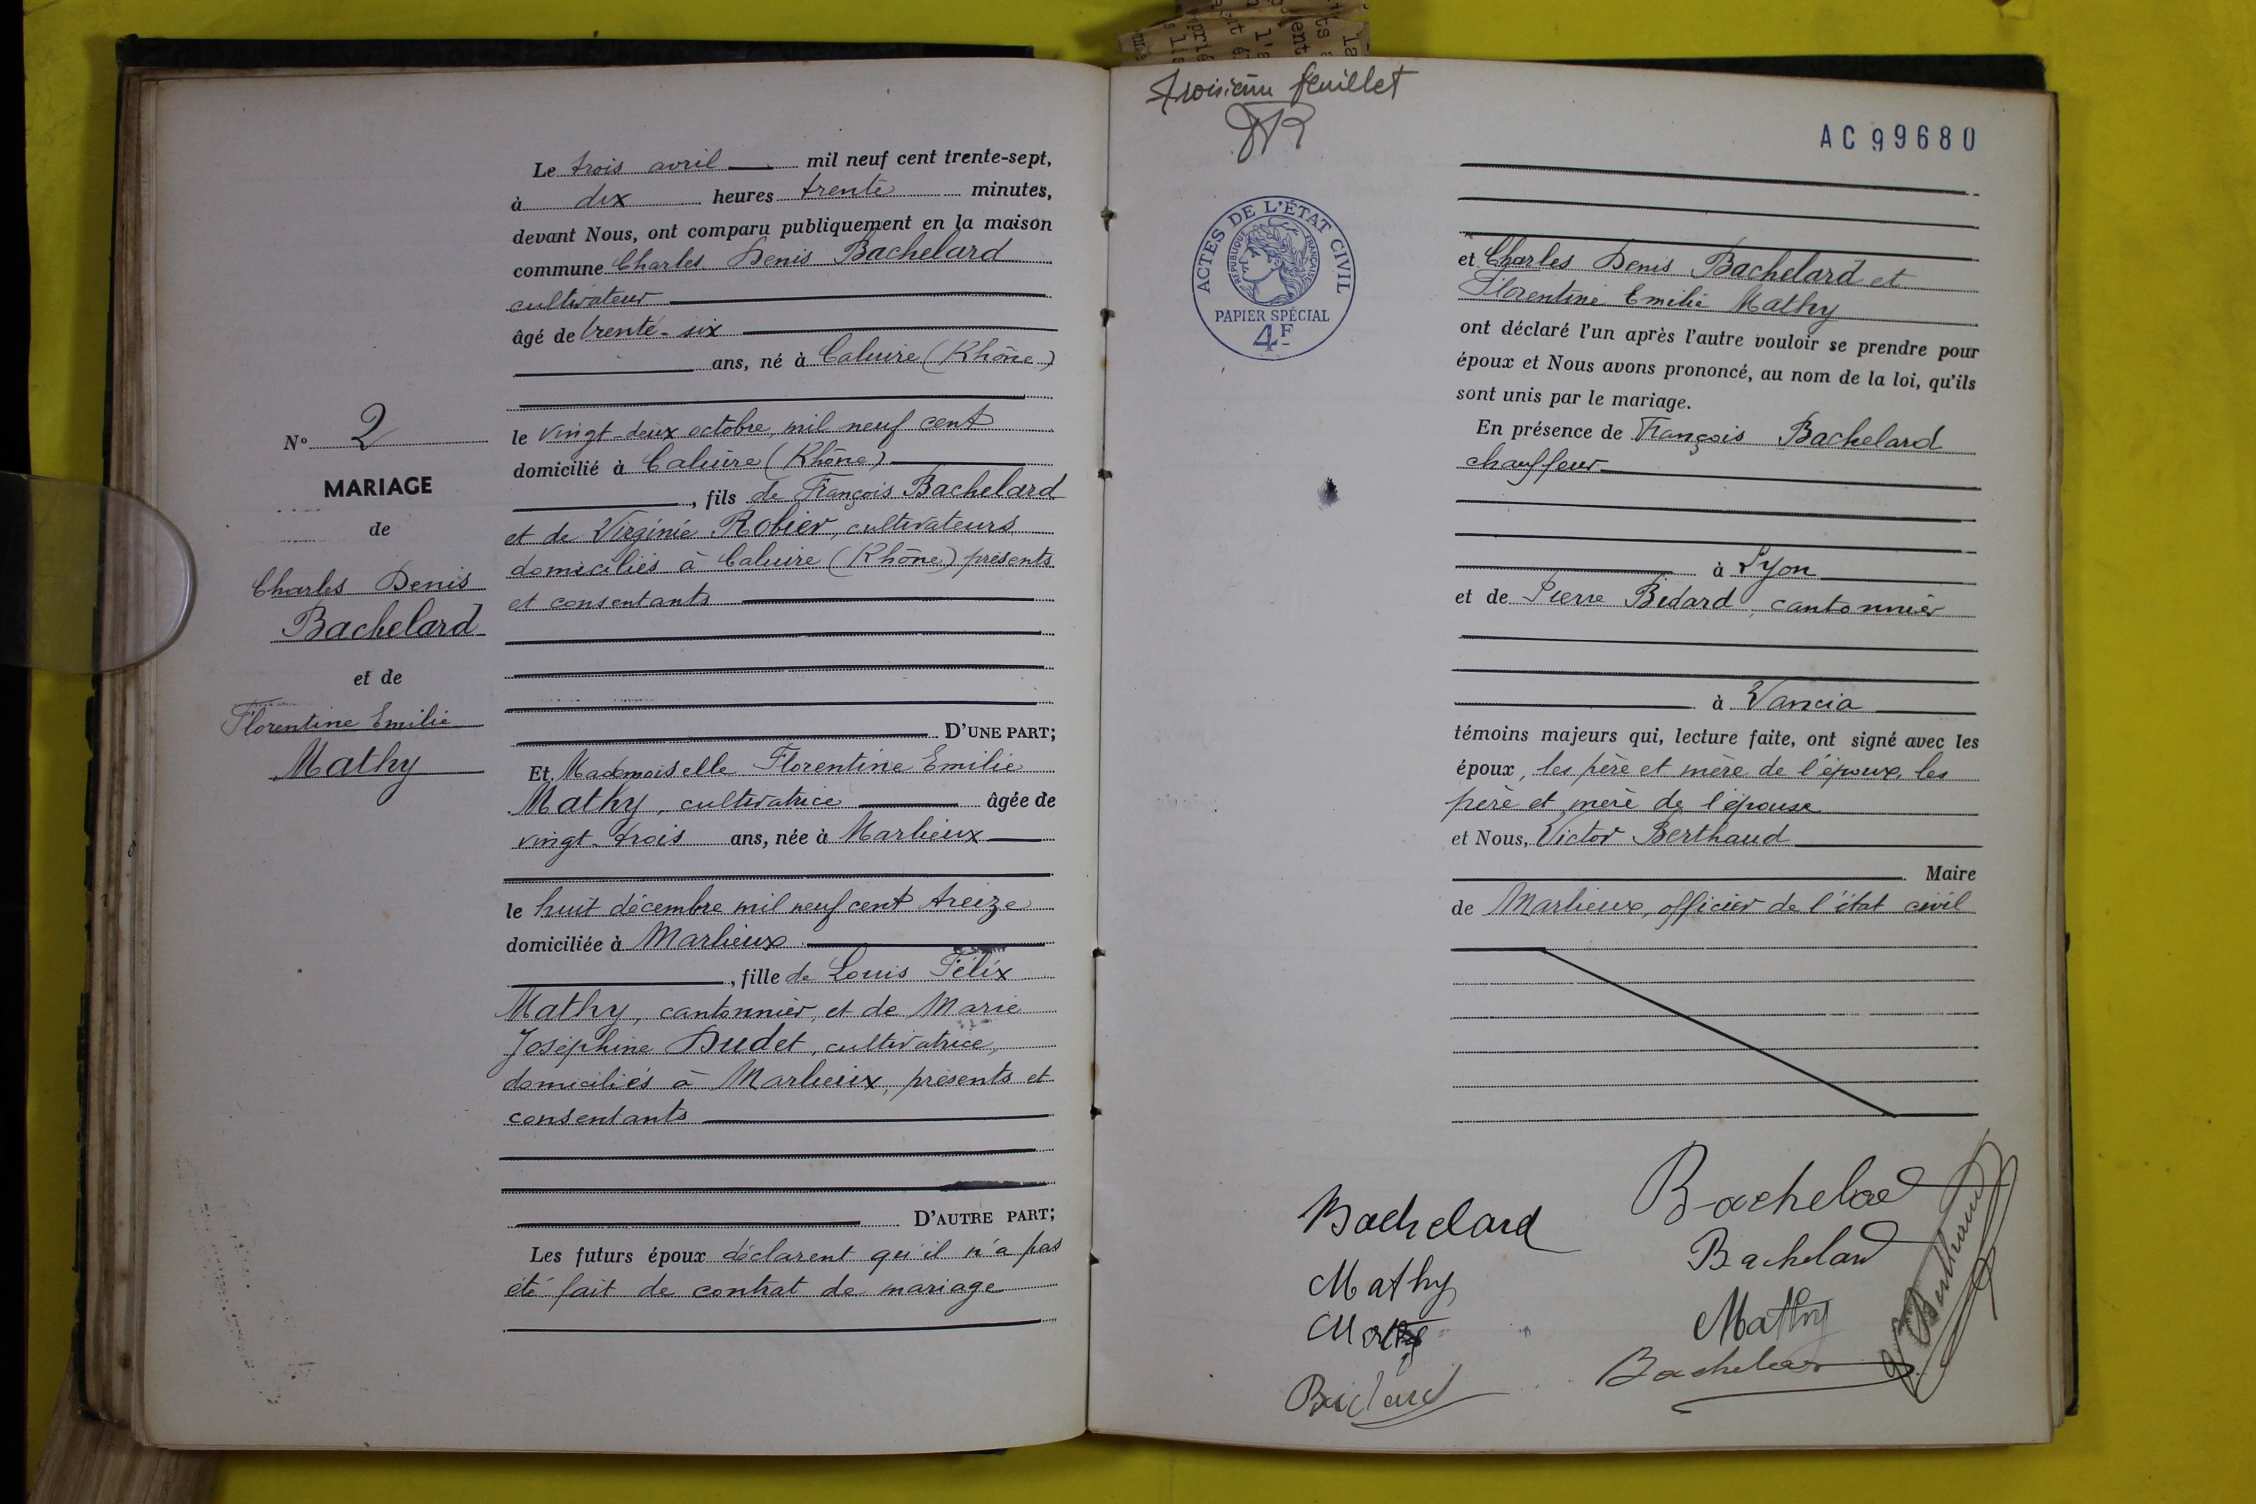 Le trois avril mil neuf cent trente-sept,
à dix heures trente minutes,
devant Nous, ont comparu publiquement en la maison
commune Charles Denis Bachelard
cultivateur
âgé de trente-six
ans, né à Caluire (Rhône)
le vingt-deux octobre mil neuf cent
domicilié à Caluire (Rhône)
, fils de François Bachelard
et de Virginie Robier, cultivateurs
domiciliés à Caluire (Rhône) présents
et consentants
D'UNE PART;
Et Mademoiselle Florentine Emilie
Mathy, cultivatrice âgée de
vingt-trois ans, née à Marlieux
le huit décembre mil neuf cent treize
domiciliée à Marlieux
, fille de Louis Félix
Mathy, cantonnier, et de Marie
Joséphine Dudet, cultivatrice,
domiciliés à Marlieux, présents et
consentants
D'AUTRE PART;
Les futurs époux déclarent qu'il n'a pas
été fait de contrat de mariage
N° 2
MARIAGE
de
Charles Denis
Bachelard
et de
Florentine Emilie
Mathy
troisième feuillet
AC 99680
ACTES DE L'ÉTAT CIVIL
RÉPUBLIQUE FRANÇAISE
PAPIER SPÉCIAL
4F
et Charles Denis Bachelard et
Florentine Emilie Mathy
ont déclaré l'un après l'autre vouloir se prendre pour
époux et Nous avons prononcé, au nom de la loi, qu'ils
sont unis par le mariage.
En présence de François Bachelard
chauffeur
à Lyon
et de Pierre Bidard, cantonnier
à Vancia
témoins majeurs qui, lecture faite, ont signé avec les
époux, les père et mère de l'époux, les
père et mère de l'épouse
et Nous, Victor Berthaud
Maire
de Marlieux, officier de l'état civil
Bachelard
Bachelard
Mathy
Bachelard
Mathy
Bachelard
Bidard
Berthaud